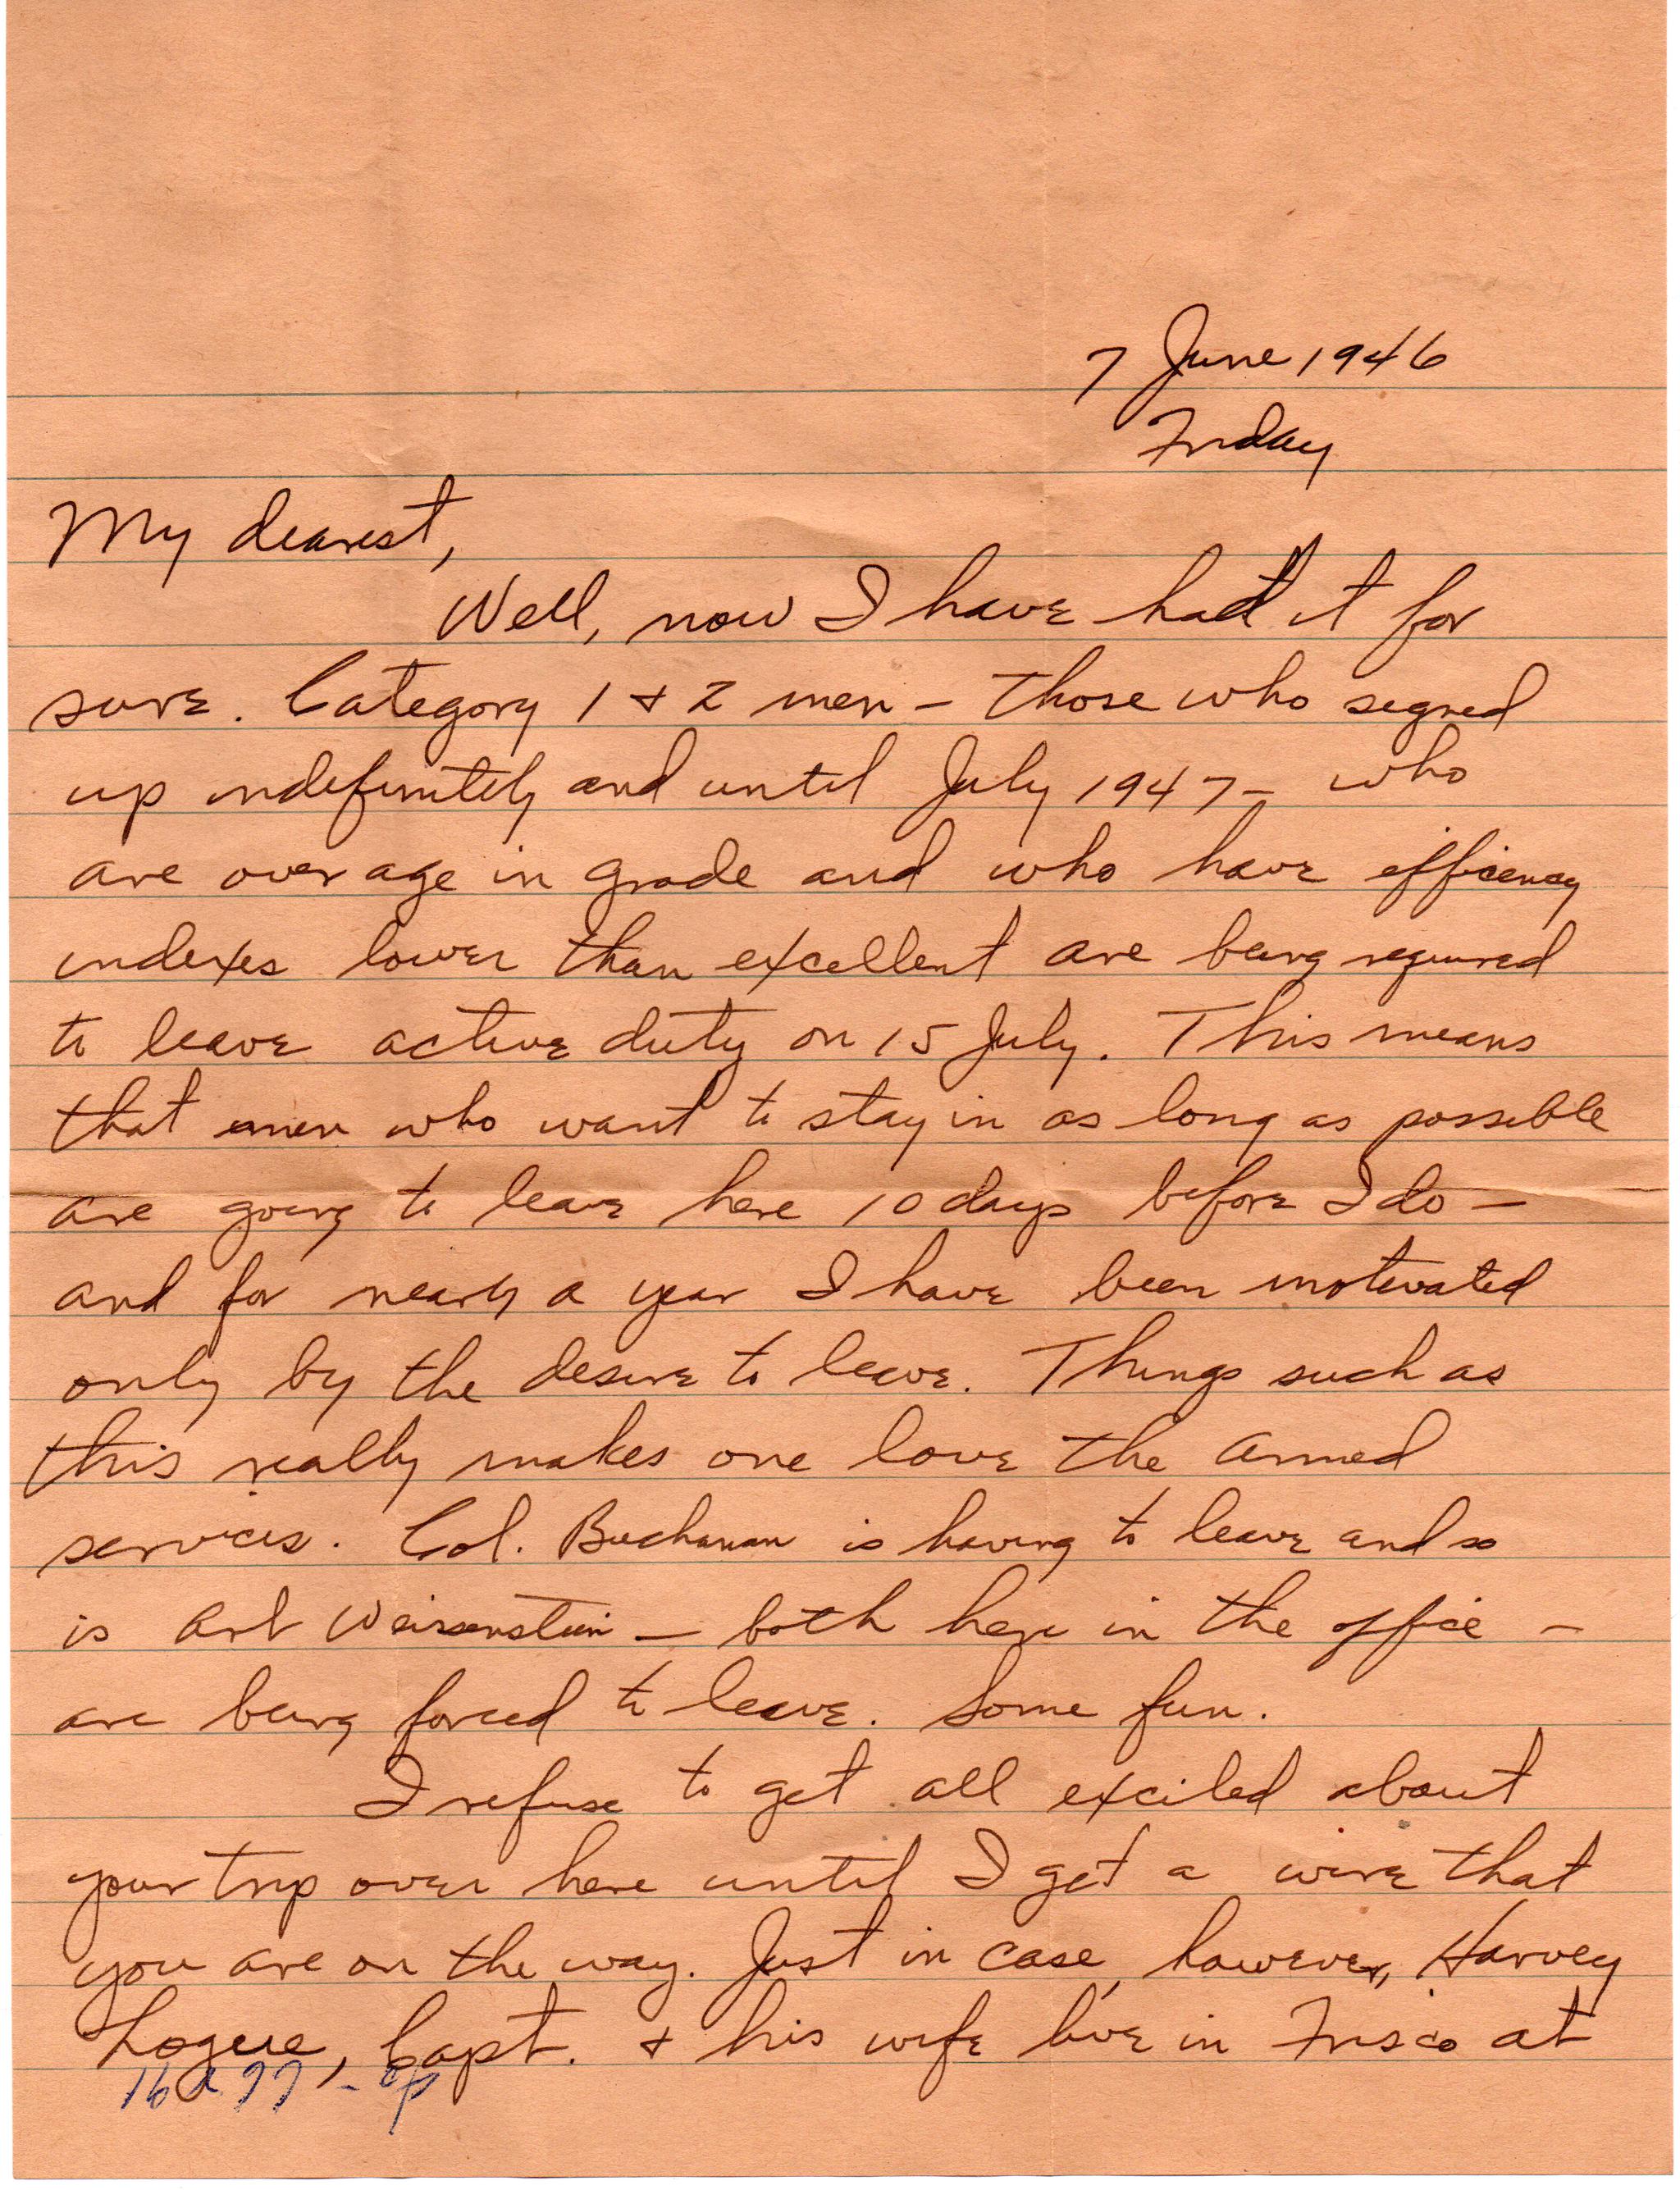 7 June 1946
Friday
My dearest,
Well, now I have had it for
sure. Category 1 + 2 men - those who signed
up indefinitely and until July 1947 - who
are over age in grade and who have efficiency
indexes lower than excellent are being required
to leave active duty on 15 July. This means
that men who want to stay in as long as possible
are going to leave here 10 days before I do -
and for nearly a year I have been motivated
only by the desire to leave. Things such as
this really makes one love the armed
services. Col. Buchanan is having to leave and so
is Art Weissenstein - both here in the office -
are being forced to leave. Some fun.
I refuse to get all excited about
your trip over here until I get a wire that
you are on the way. Just in case, however, Harvey
Logue, Capt. + his wife live in Frisco at